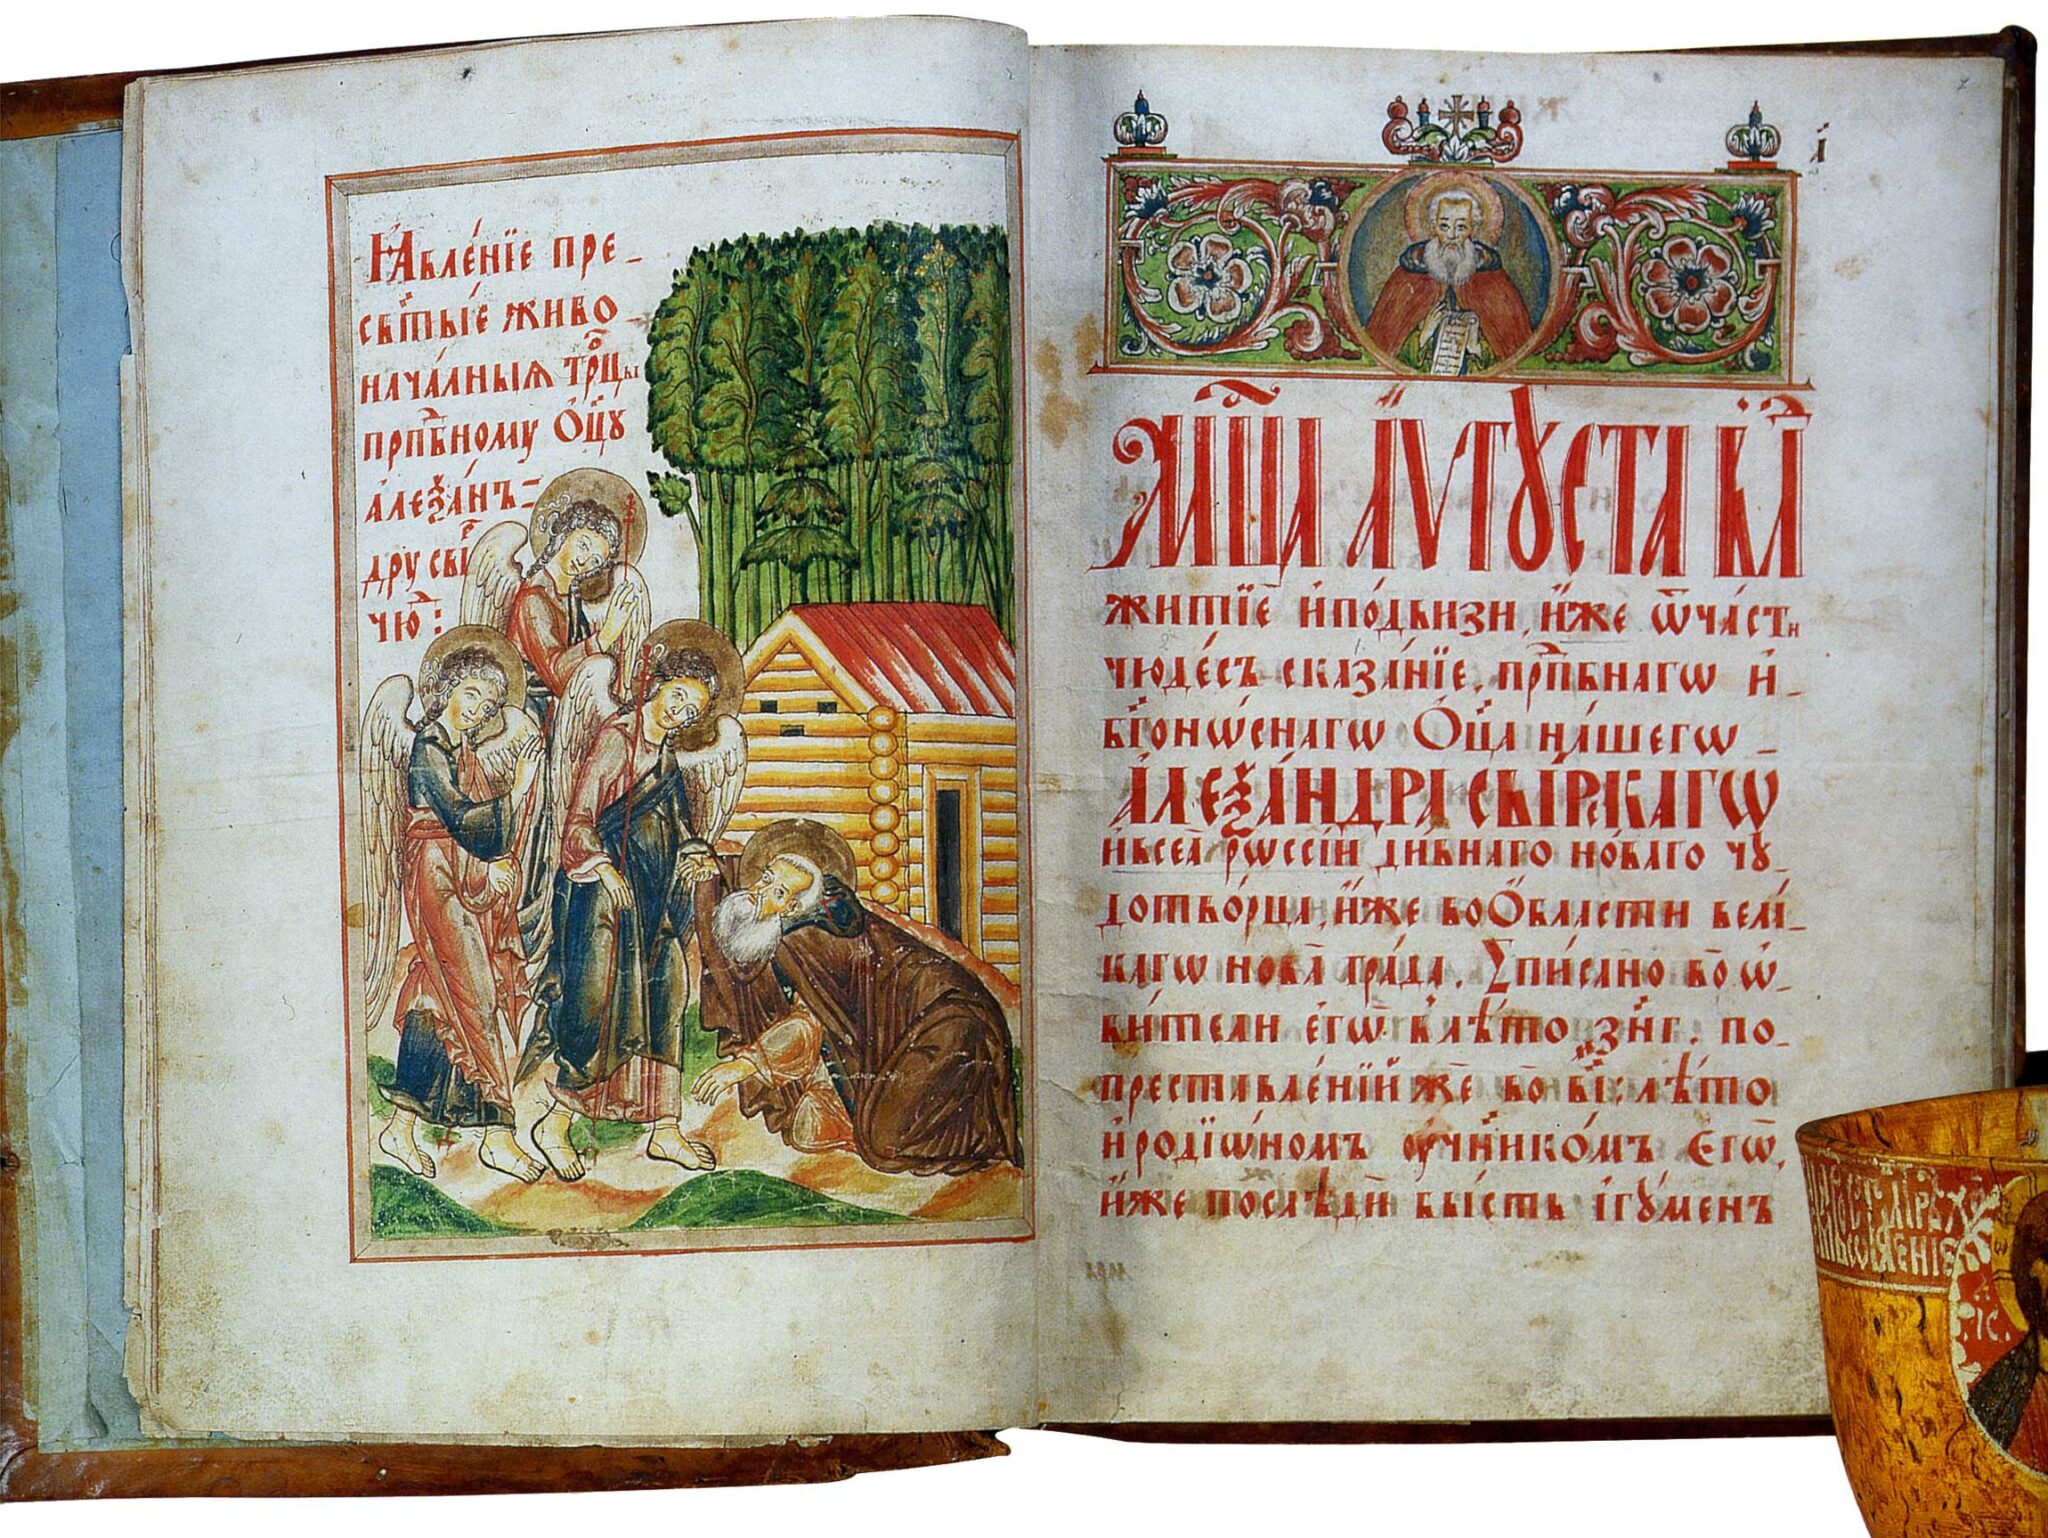 Ꙗ҆вле́нїе пре-
ст҃ы́ѧ живо-
нача́лныѧ трⷪ҇цы
прпⷣбному ѻ҆ц҃ꙋ
а҆леѯа́нъ-
дру сви́рⷭ
чю҆:
а҃
Мц҃а а҆ѵгꙋста к҃л
житїе и҆ подвизи, и҆́же ѿчасти
чюде́съ сказа́нїе, прпⷣбнагѡ и҆
бг҃оно́снагѡ ѻ҆ц҃а на́шегѡ
А҆леѯа́ндра сви́рскагѡ
и҆ всеѧ̀ рѡссі́и ди́внаго но́ваго чꙋ-
дотво́рца, и҆́же во ѻ҆́бласти вели́-
кагѡ нова̀ гра́да. Списано во ѡ҆-
би́тели є҆гѡ̀ в лѣ́то ҂знг҃, по
преставле́нїи жѐ во в҃і: лѣ́то
и҆родїѡ́номъ ᲂу҆чн҃ико́мъ є҆гѡ̀,
и҆́же послѣдѝ бы́сть і҆гꙋ́менъ
І҃С